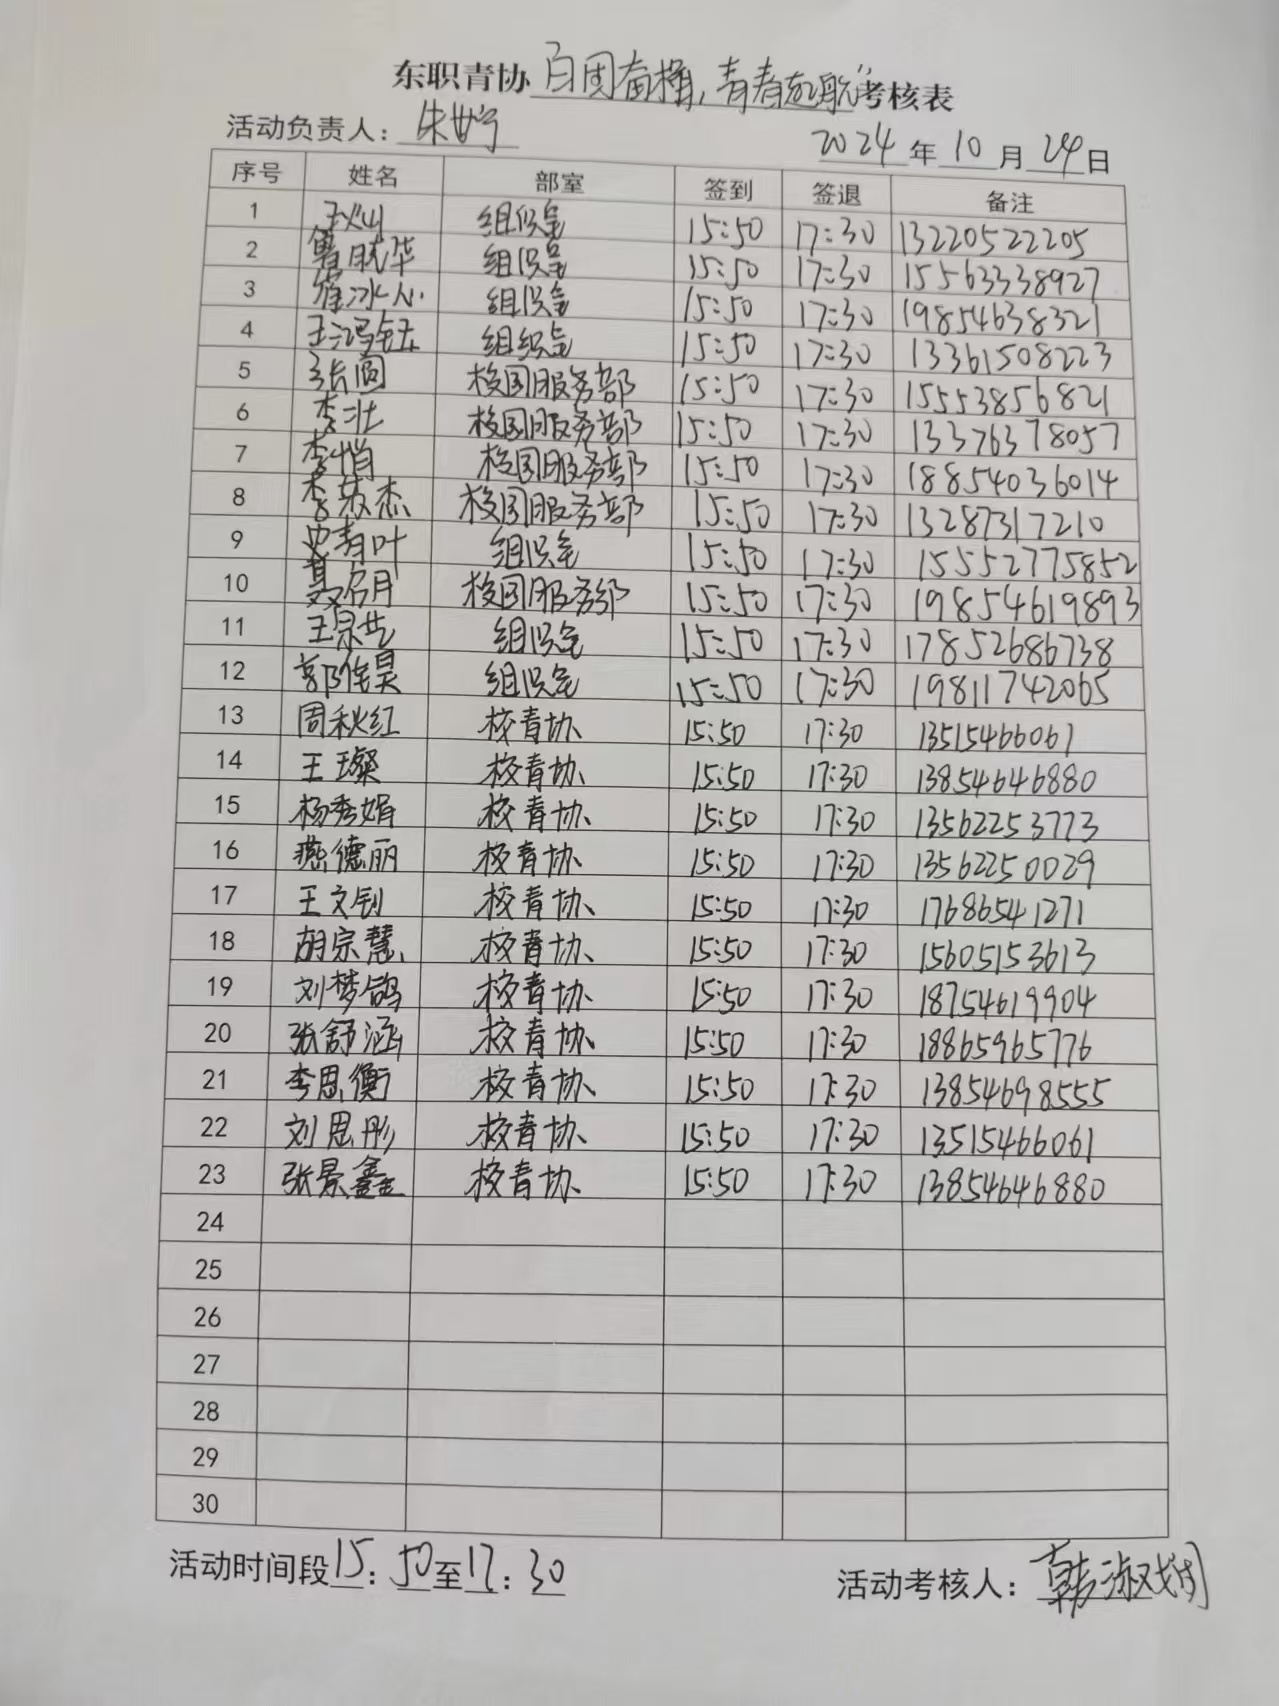 东职青协百团奋楫，青春起航”考核表
活动负责人：朱
2024年10月24日
序号 姓名 部室 签到 签退 备注
1 组织室 15:50 17:30 13220522205
2 组织室 15:50 17:30 15563338927
3 崔冰心 组织室 15:50 17:30 19854638321
4 王鸿钰 组织室 15:50 17:30 13361508223
5 张圆 校园服务部 15:50 17:30 15553856821
6 李壮 校园服务部 15:50 17:30 13376378057
7 李悄 校园服务部 15:50 17:30 18854036014
8 杰 校园服务部 15:50 17:30 13287317210
9 史青叶 组织室 15:50 17:30 15552775852
10 聂名月 校园服务部 15:50 17:30 19854619893
11 王 组织室 15:50 17:30 17852686738
12 郭隹昊 组织室 15:50 17:30 19811742065
13 周秋红 校青协 15:50 17:30 13515466061
14 王璨 校青协 15:50 17:30 13854646880
15 杨秀娟 校青协 15:50 17:30 13562253773
16 燕德丽 校青协 15:50 17:30 13562250029
17 王文钊 校青协 15:50 17:30 17686541271
18 胡宗慧 校青协 15:50 17:30 15605153613
19 刘梦鸽 校青协 15:50 17:30 18754619904
20 张舒涵 校青协 15:50 17:30 18865965776
21 李思衡 校青协 15:50 17:30 13854698555
22 刘思彤 校青协 15:50 17:30 13515466061
23 张景鑫 校青协 15:50 17:30 13854646880
24
25
26
27
28
29
30
活动时间段15:50至17:30
活动考核人：韩淑